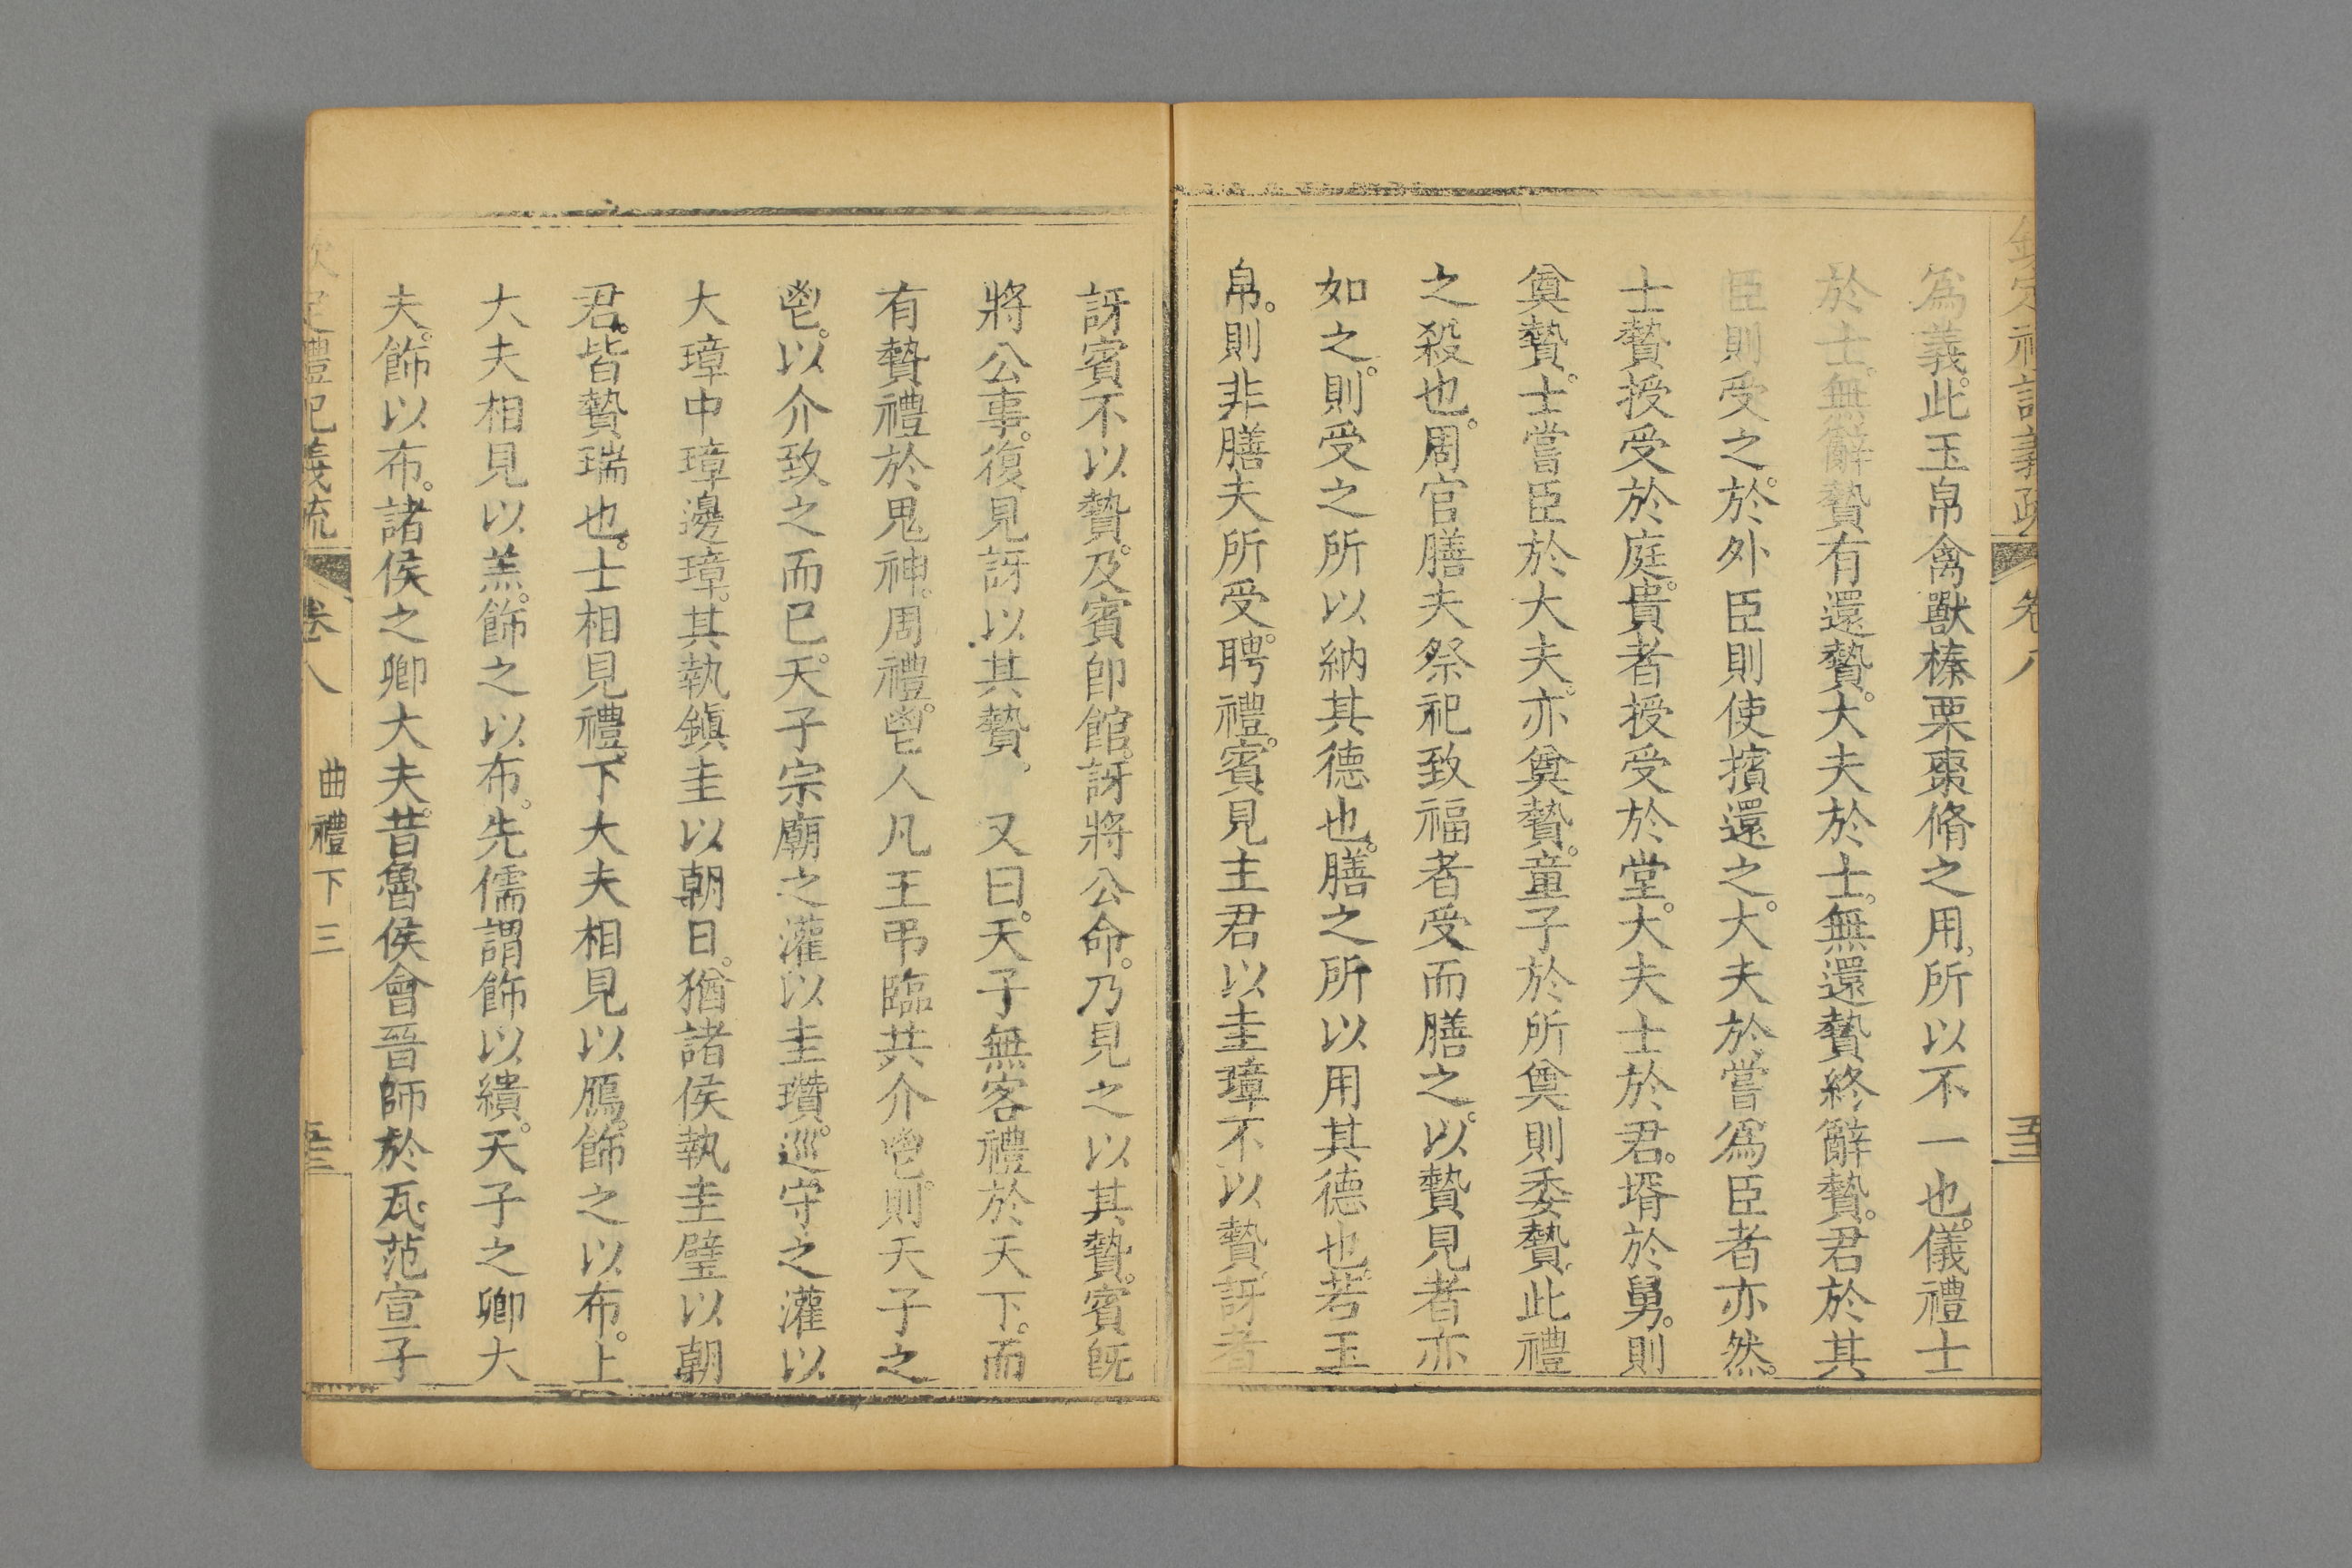 欽定禮記義疏 卷八 五三
為義。此玉帛禽獸榛栗棗脩之用。所以不一也。儀禮士
於士。無辭贄有還贄。大夫於士。無還贄終辭贄。君於其
臣則受之。於外臣則使擯還之。大夫於嘗為臣者亦然。
士贄授受於庭。貴者授受於堂。大夫士於君。壻於舅。則
奠贄。士嘗臣於大夫。亦奠贄。童子於所奠則委贄。此禮
之殺也。周官膳夫祭祀致福者受而膳之。以贄見者亦
如之。則受之所以納其德也。膳之所以用其德也。若玉
帛。則非膳夫所受。聘禮。賓見主君以圭璋不以贄。訝者
訝賓不以贄。及賓即館。訝將公命。乃見之以其贄。賓旣
將公事。復見訝以其贄。 又曰。天子無客禮於天下。而
有贄禮於鬼神。周禮。鬯人凡王弔臨共介鬯。則天子之
鬯。以介致之而已。天子宗廟之灌以圭瓚。巡守之灌以
大璋中璋邊璋。其執鎮圭以朝日。猶諸侯執圭璧以朝
君。皆贄瑞也。士相見禮。下大夫相見以鴈。飾之以布。上
大夫相見以羔。飾之以布。先儒謂飾以繢。天子之卿大
夫。飾以布。諸侯之卿大夫。昔魯侯會晉師於瓦。范宣子
欽定禮記義疏 卷八 曲禮下三 五三